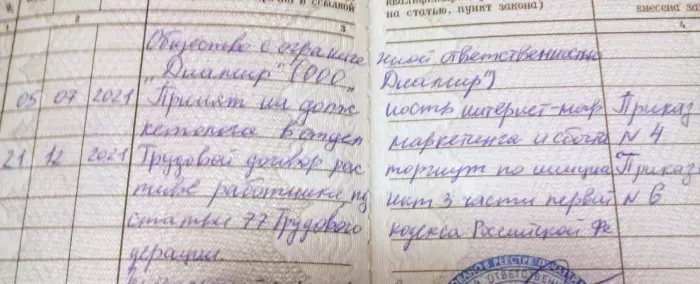 и ссылкой
на статью, пункт закона)
внесена за
1 2 3 4
Общество с ограниче нной ответственностью
„Диамир" (ООО „ Диамир")
05 07 2021 Принят на долж ность интернет-мар Приказ
кетолога в отдел маркетинга и сбыта N 4
21 12 2021 Трудовой договор рас торгнут по инициа Приказ
тиве работника, пу нкт 3 части первой N 6
статьи 77 Трудового кодекса Российской Фе
дерации.